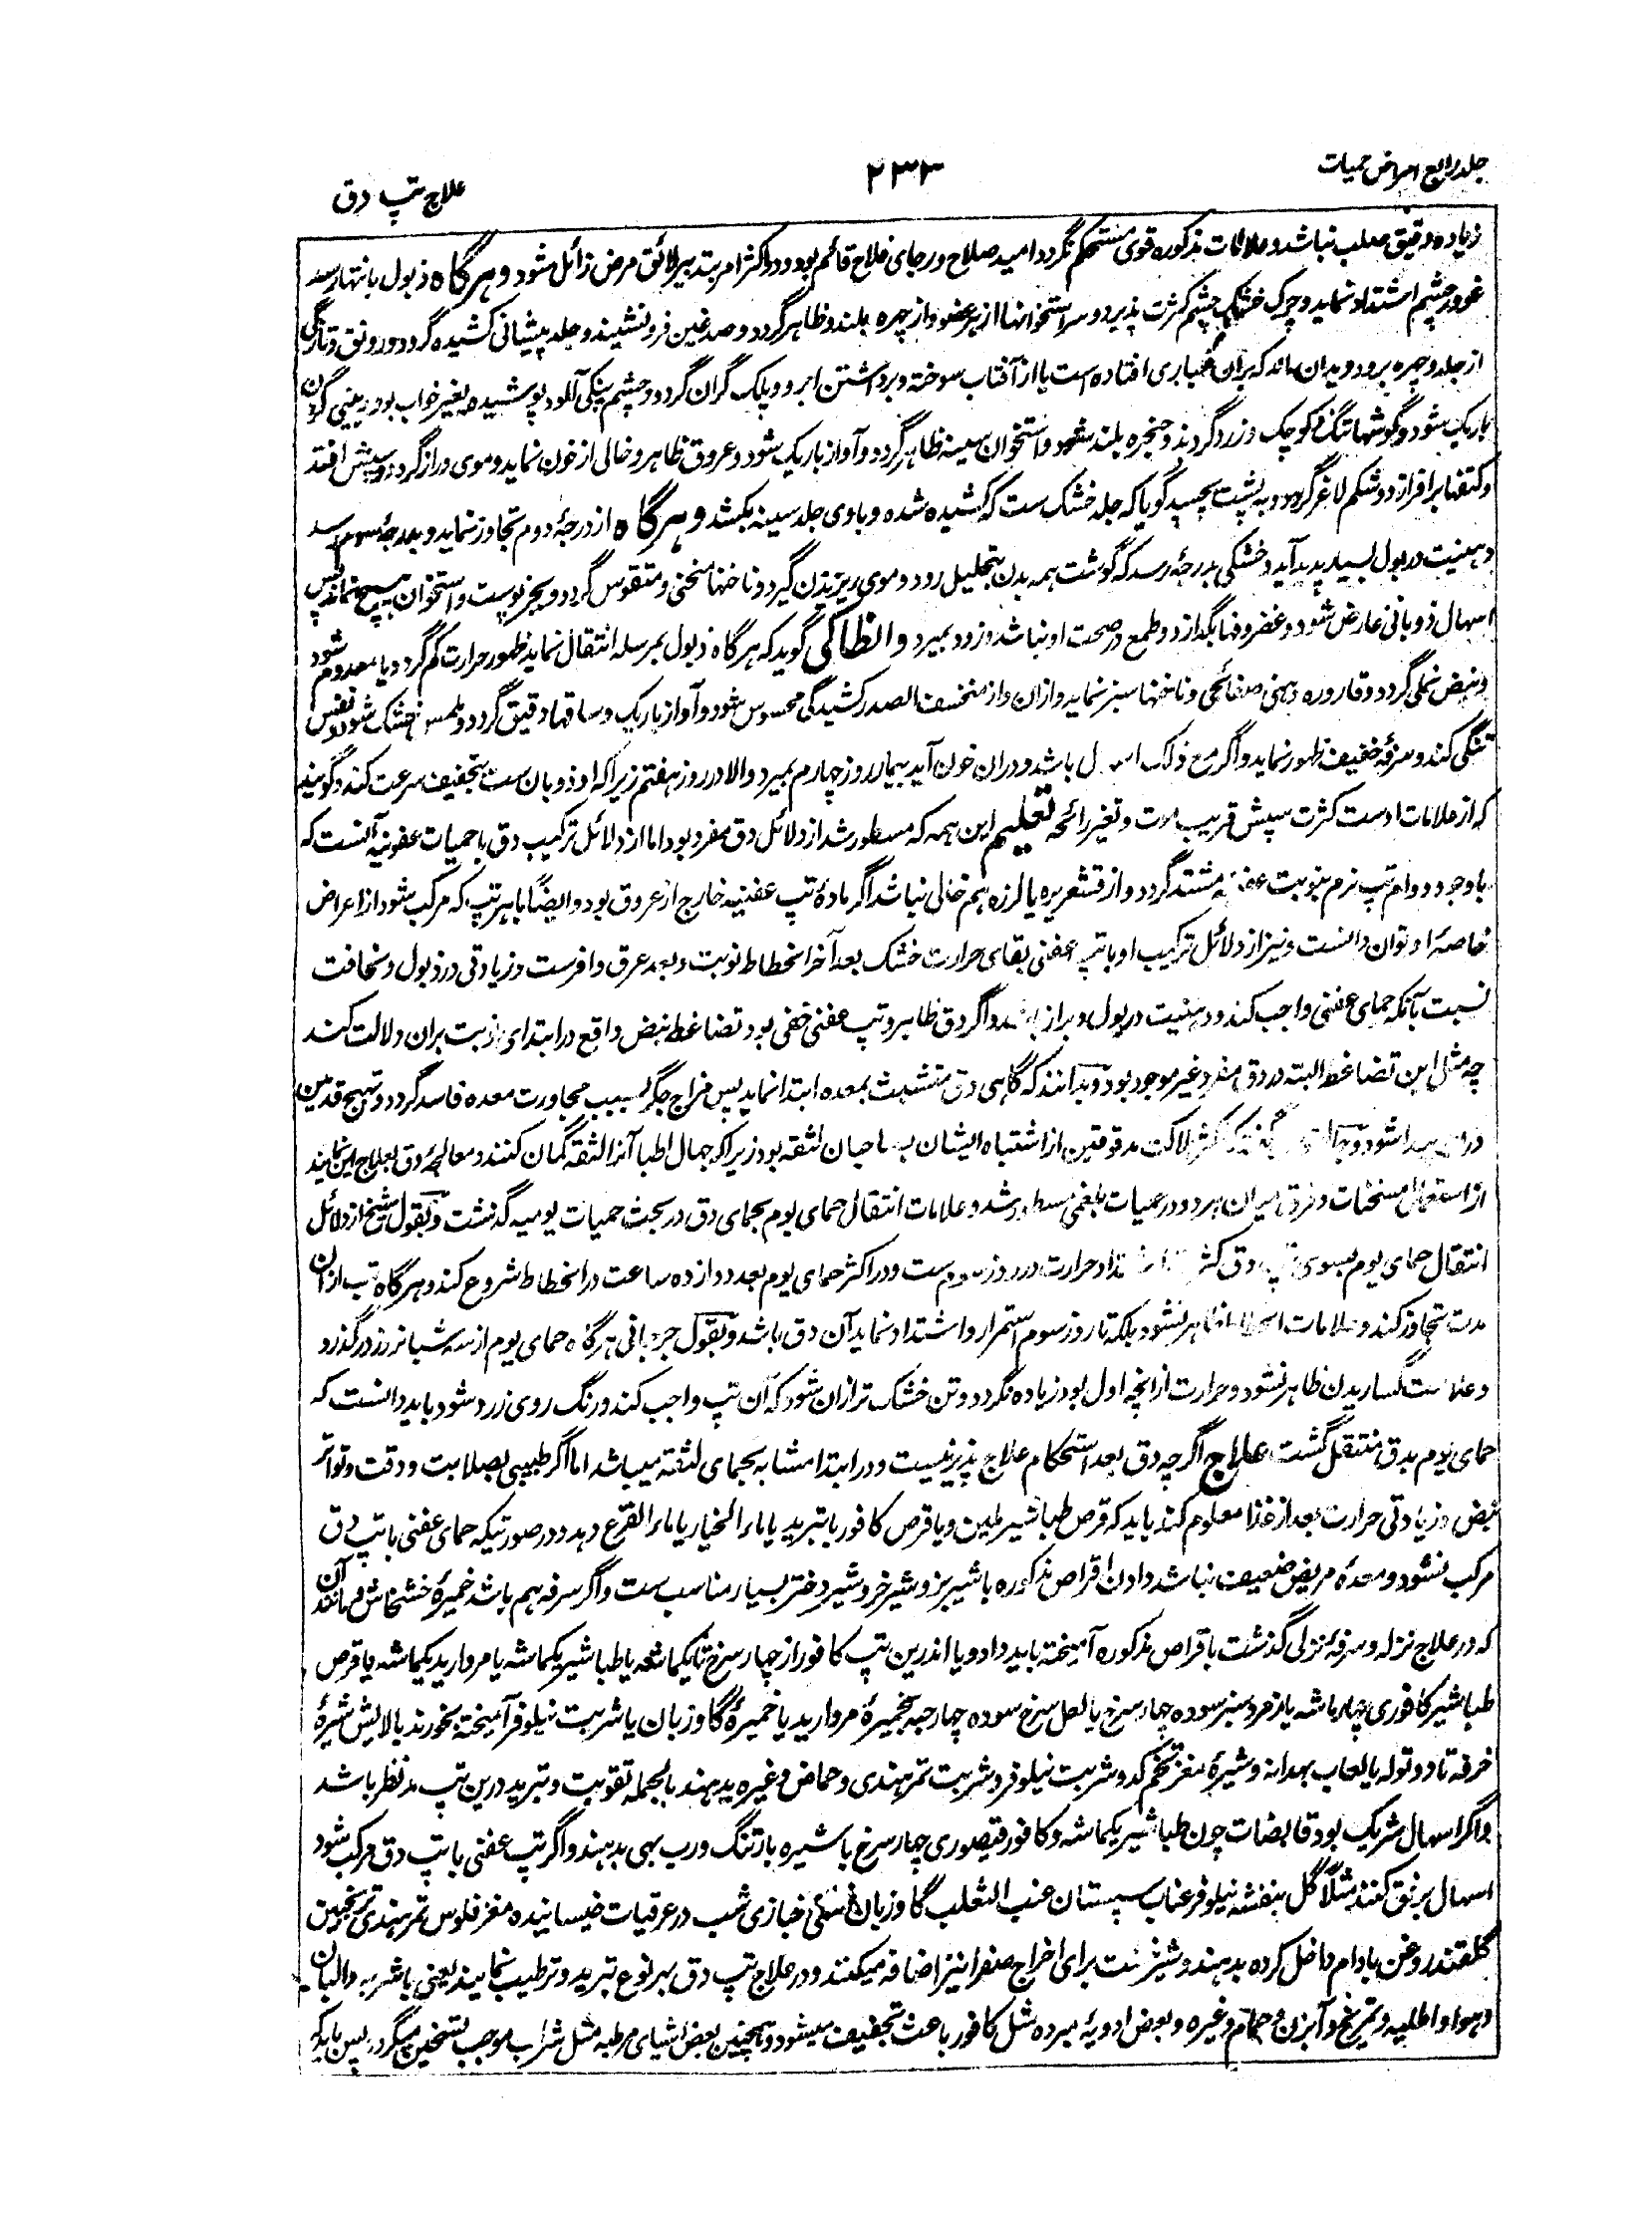 جلد رابع امراض حمیات
۲۳۳
علاج تپ دق
زیاده دقیق صلب نباشد و علامات مذکوره قوی مستحکم نگردد امید صلاح و رجای فلاح قائم بود و در اکثر امر بتدبیر لائق مرض زائل شود و هرگاه ذبول بانتها رسد
غور چشم اشتداد نماید و چرک خشک چشم کثرت پذیرد و سر استخوانها از هر عضو و از چهره بلند و ظاهر گردد و صدغین فرو نشیند و جلد پیشانی کشیده گردد و رونق و تازگی
از جلد و چهره برود و بدان ماند که بران غباری افتاده است یا از آفتاب سوخته و برداشتن ابرو و پلک گران گردد و چشم پینکی آلود پوشیده بغیر خواب بود و بینی گردن
باریک شود و گوشها تنگ کوچک و زرد گردند و حنجره بلند شود و استخوان سینه ظاهر گردد و آواز باریک شود و عروق ظاهر و خالی از خون نماید و موی دراز گردد و سپش افتد
و کتفها برافرازد و شکم لاغر گردد و به پشت بچسپد گویا که جلد خشک ست که کشیده شده و باوی جلد سینه بکشد و هرگاه از درجۀ دوم تجاوز نماید و بدرجۀ سوم رسد
دهنیت در بول بسیار پدید آید و خشکی بدرجۀ رسد که گوشت همه بدن بتحلیل رود و موی ریزیدن گیرد و ناخنها منحنی و متقوس گردد و بجز پوست و استخوان هیچ نماند پس
اسهال ذوبانی عارض شود و غضروفها بگدازد و طمع در صحت او نباشد و زود بمیرد و انطاکی گوید که هرگاه ذبول بمرسله انتقال نماید ظهور حرارت کم گردد یا معدوم شود
و نبض نملی گردد و قاروره دهنی صفائحی و ناخنها سبز نماید و ازان و از منخسف الصدر کشیدگی محسوس شود و آواز باریک و ساقها دقیق گردد و ملمس خشک شود و نفس
تنگی کند و سرفۀ خفیف ظهور نماید و اگر مع ذلک اسهال باشد و دران خون آید بیمار روز چهارم بمیرد و الا در روز هفتم زیرا که او ذوبان ست بتجفیف سرعت کند و گویند
که از علامات اوست کثرت سپش قریب موت و تغیر رائحه تعلیم این همه که مسطور شد از دلائل دق مفرد بود اما از دلائل ترکیب دق با حمیات عفونیه آنست که
با وجود دوام تپ نرم بنوبت عفنه مشتد گردد و از قشعریره یا لرزه هم خالی نباشد اگر مادۀ تپ عفنیه خارج از عروق بود و ایضاً با هر تپ که مرکب شود از اعراض
خاصۀ او توان دانست و نیز از دلائل ترکیب او با تپ عفنی بقای حرارت خشک بعد آخر انحطاط نوبت و بعد عرق وافرست و زیادتی در ذبول و نحافت
نسبت بآنکه حمای عفنی واجب کند و دهنیت در بول و براز باشد و اگر دق ظاهر و تپ عفنی خفی بود تضاغط نبض واقع در ابتدای نوبت بران دلالت کند
چه مثل این تضاغط البته در دق مفرد غیر موجود بود و بدانند که گاهی دق متشبث بمعده ابتدا نماید پس مزاج جگر بسبب مجاورت معده فاسد گردد و تهیج قدمین
دران پیدا شود و هلاکت مدقوقین از اشتباه ایشان بصاحبان لثقه بود زیرا که جهال اطبا آنرا لثقه گمان کنند و معالجۀ دق بعلاج این نمایند
از استعمال مسخنات و فرق میان هر دو در حمیات بلغمی مسطور شد و علامات انتقال حمای یوم بحمای دق در بحث حمیات یومیه گذشت و بقول شیخ از دلائل
انتقال حمای یوم بسوی تپ دق اشتداد حرارت در روز سوم ست و در اکثر حمای یوم بعد دوازده ساعت در انحطاط شروع کند و هرگاه تب ازان
مدت تجاوز کند و علامات انحطاط ظاهر نشود بلکه تا روز سوم استمرار و اشتداد نماید آن دق باشد و بقول جرجانی هرگاه حمای یوم از سه شبانروز در گذرد
و علامت گساریدن ظاهر نشود و حرارت ازانچه اول بود زیاده نگردد و تن خشک تر ازان شود که آن تپ واجب کند و رنگ روی زرد شود باید دانست که
حمای یوم بدق منتقل گشت علاج اگر چه دق بعد استحکام علاج پذیر نیست و در ابتدا مشابه بحمای لثقه میباشد اما اگر طبیبی بصلابت و دقت و تواتر
نبض و زیادتی حرارت بعد از غذا معلوم کند باید که قرص طباشیر ملین و یا قرص کافور با تبرید یا ماء الخیار یا ماء القرع دهد و در صورتیکه حمای عفنی با تپ دق
مرکب نشود و معدۀ مریض ضعیف نباشد دادن اقراص مذکوره با شیر بز و شیر خر و شیر دختر بسیار مناسب ست و اگر سرفه هم باشد خمیرۀ خشخاش و مانند آن
که در علاج نزله و سرفۀ نزلی گذشت با قراص مذکوره آمیخته باید داد و یا اندرین تپ کافور از چهار سرخ تا یکماشه یا طباشیر یکماشه یا مروارید یکماشه یا قرص
طباشیر کافوری چهار ماشه یا زمرد سبز سوده چهار سرخ یا لعل سرخ سوده چهار حبه بخمیرۀ مروارید یا خمیرۀ گاوزبان یا شربت نیلوفر آمیخته بخورند بالایش شیرۀ
خرفه تا دو توله یا لعاب بهدانه و شیرۀ مغز تخم کدو شربت نیلوفر و شربت تمر هندی و حماض و غیره بدهند بالجمله تقویت و تبرید درین تپ مد نظر باشد
و اگر اسهال شریک بود قابضات چون طباشیر یکماشه و کافور قیصوری چهار سرخ با شیره بارتنگ و رب بهی بدهند و اگر تپ عفنی با تپ دق مرکب شود
اسهال برفق کنند مثلاً گل بنفشه نیلوفر عناب سپستان عنب الثعلب گاوزبان خطمی خبازی شب در عرقیات خیسانیده مغز فلوس تمر هندی ترنجبین
گلقند روغن بادام داخل کرده بدهند و شیرخشت برای اخراج صفرا نیز اضافه میکنند و در علاج تپ دق بهر نوع تبرید و ترطیب نمایند یعنی باشربه و البان
و هوا و اطلیه و تمریخ و آبزن و حمام و غیره و بعض ادویۀ مبرده مثل کافور باعث تجفیف میشود و همچنین بعض اشیای مرطبه مثل شراب موجب تسخین میگردد پس باید که